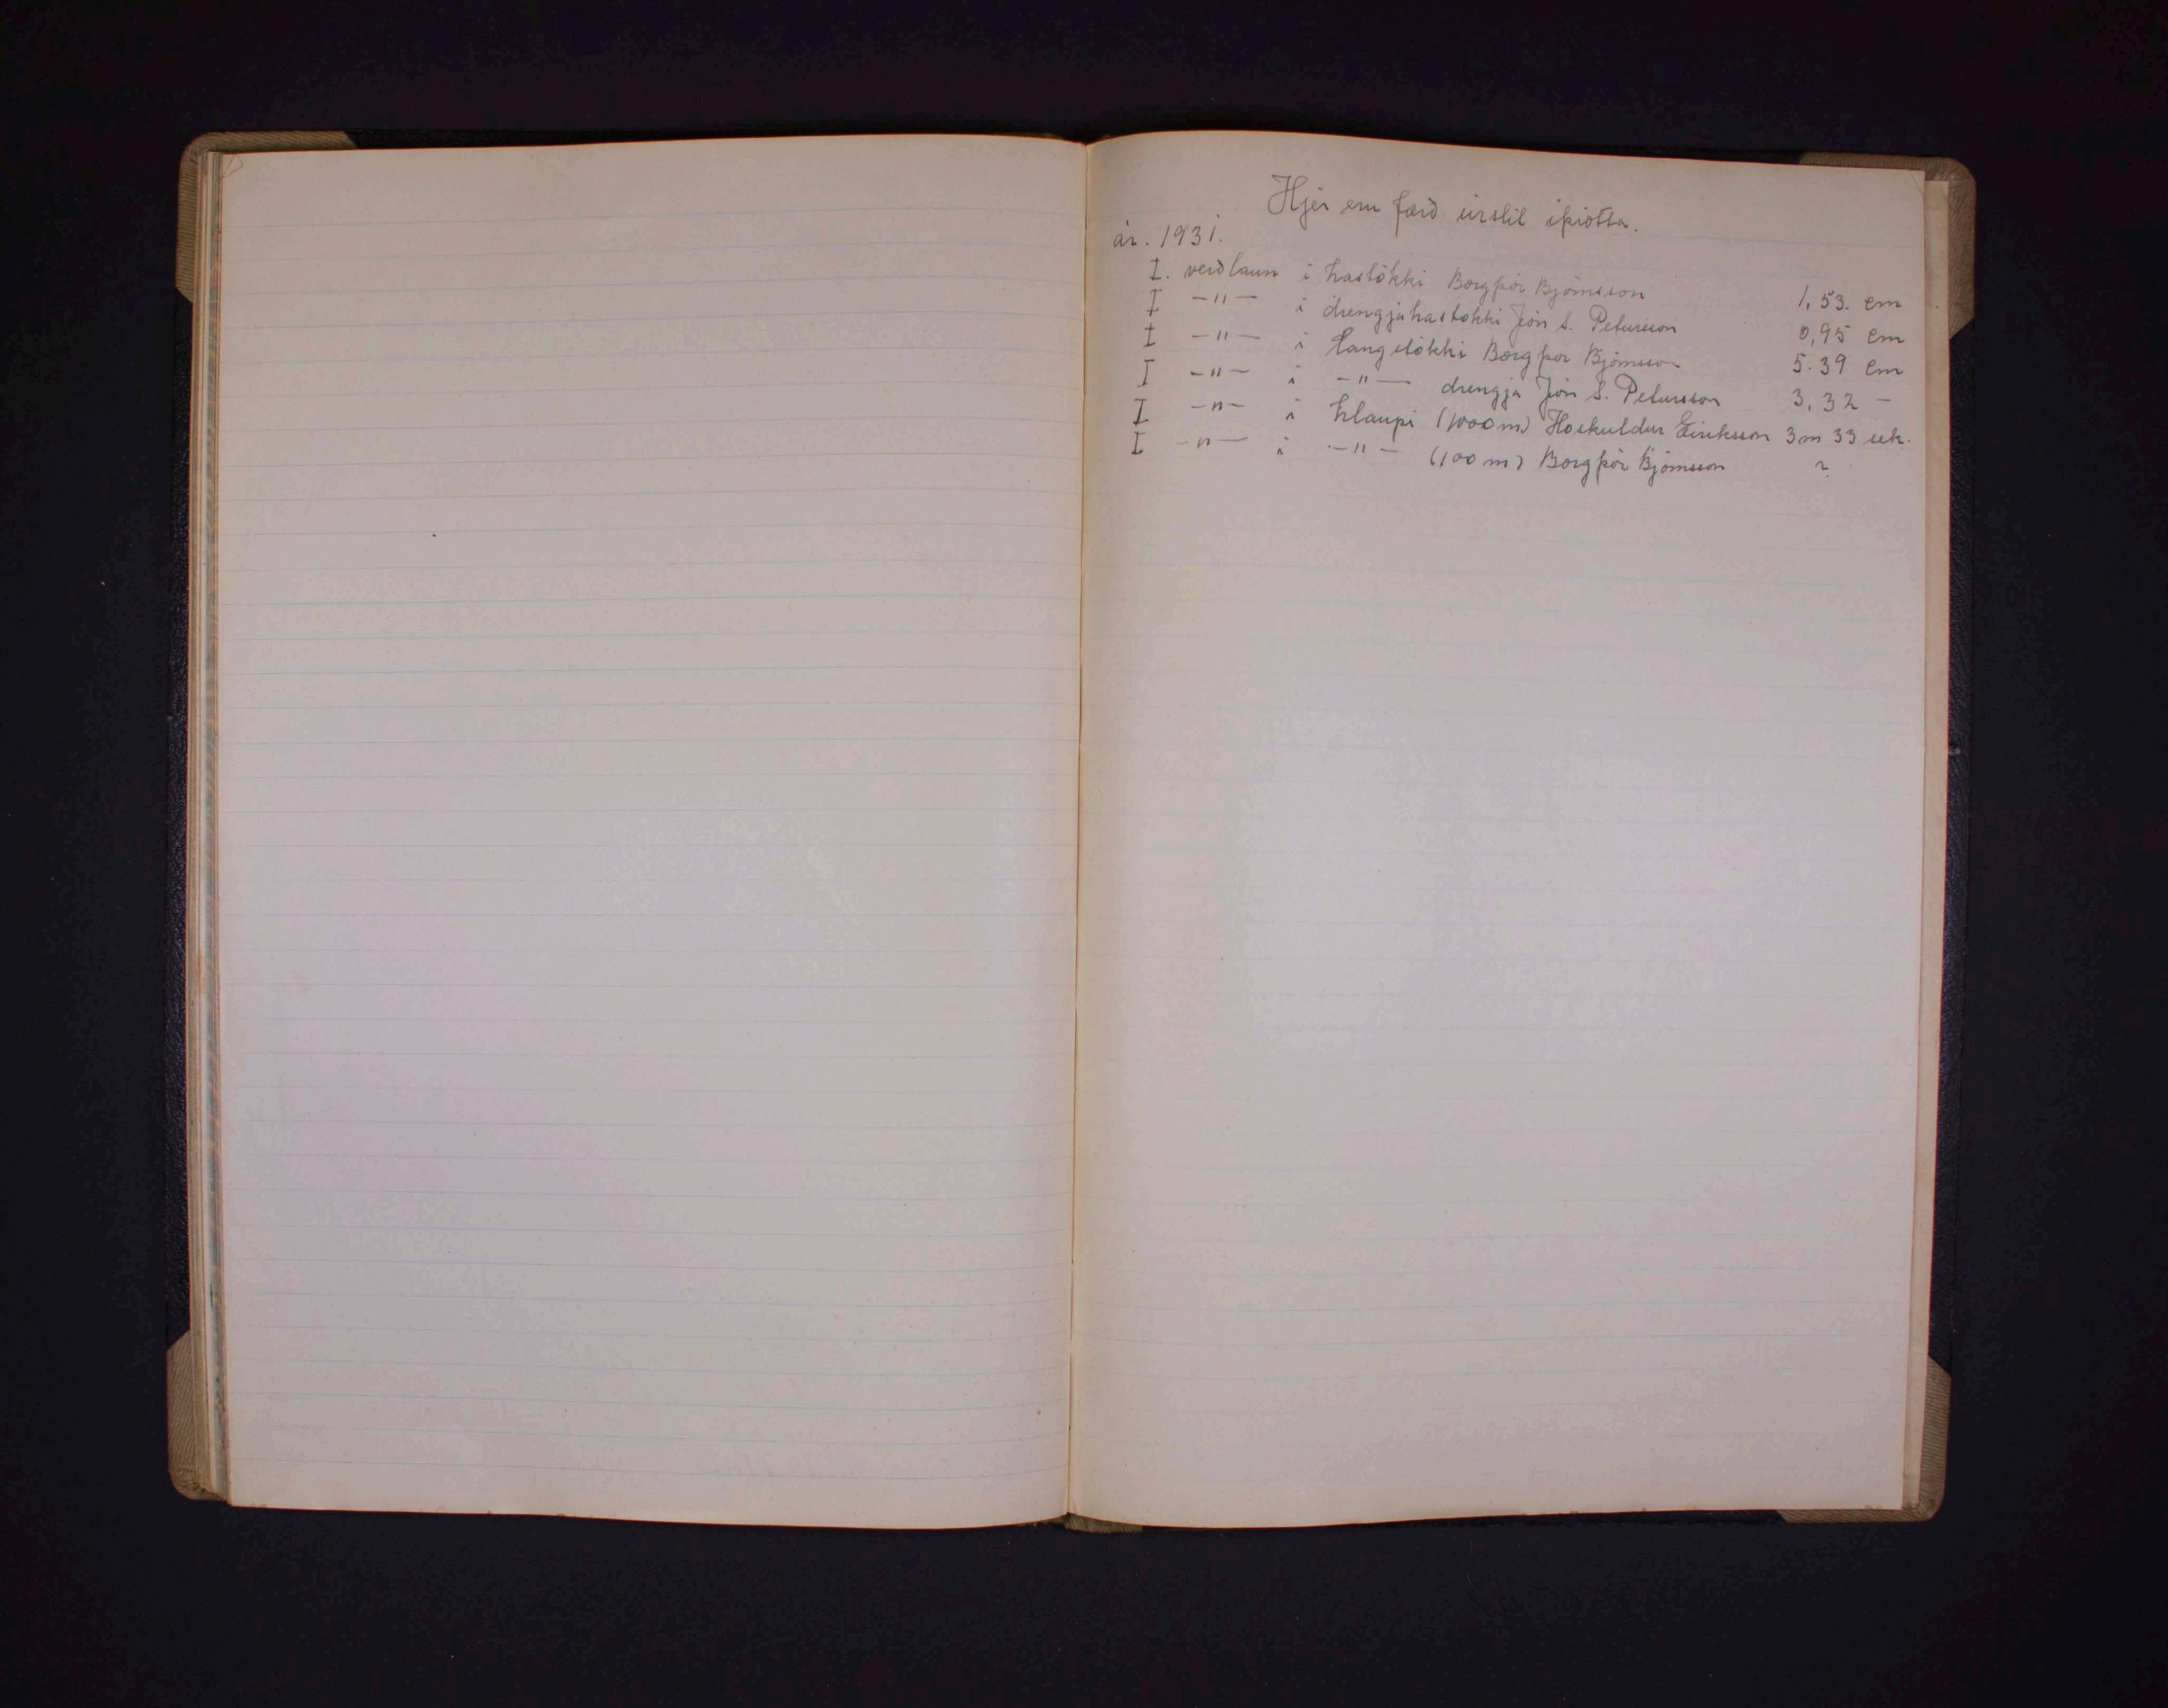 Hjer eru færð úrslit íþrótta.
ár. 1931.
I. verðlaun í hástökki Borgþór Björnsson 1,53. cm
I —"— í drengjahástökki Jón S. Pétursson 0,95 cm
I —"— í langstökki Borgþór Björnsson 5.39 cm
I —"— í —"— drengja Jón S. Pétursson 3,32 —
I —"— í hlaupi (1000 m) Höskuldur Eiríksson 3 m 33 sek.
I —"— í —"— (100 m) Borgþór Björnsson ?